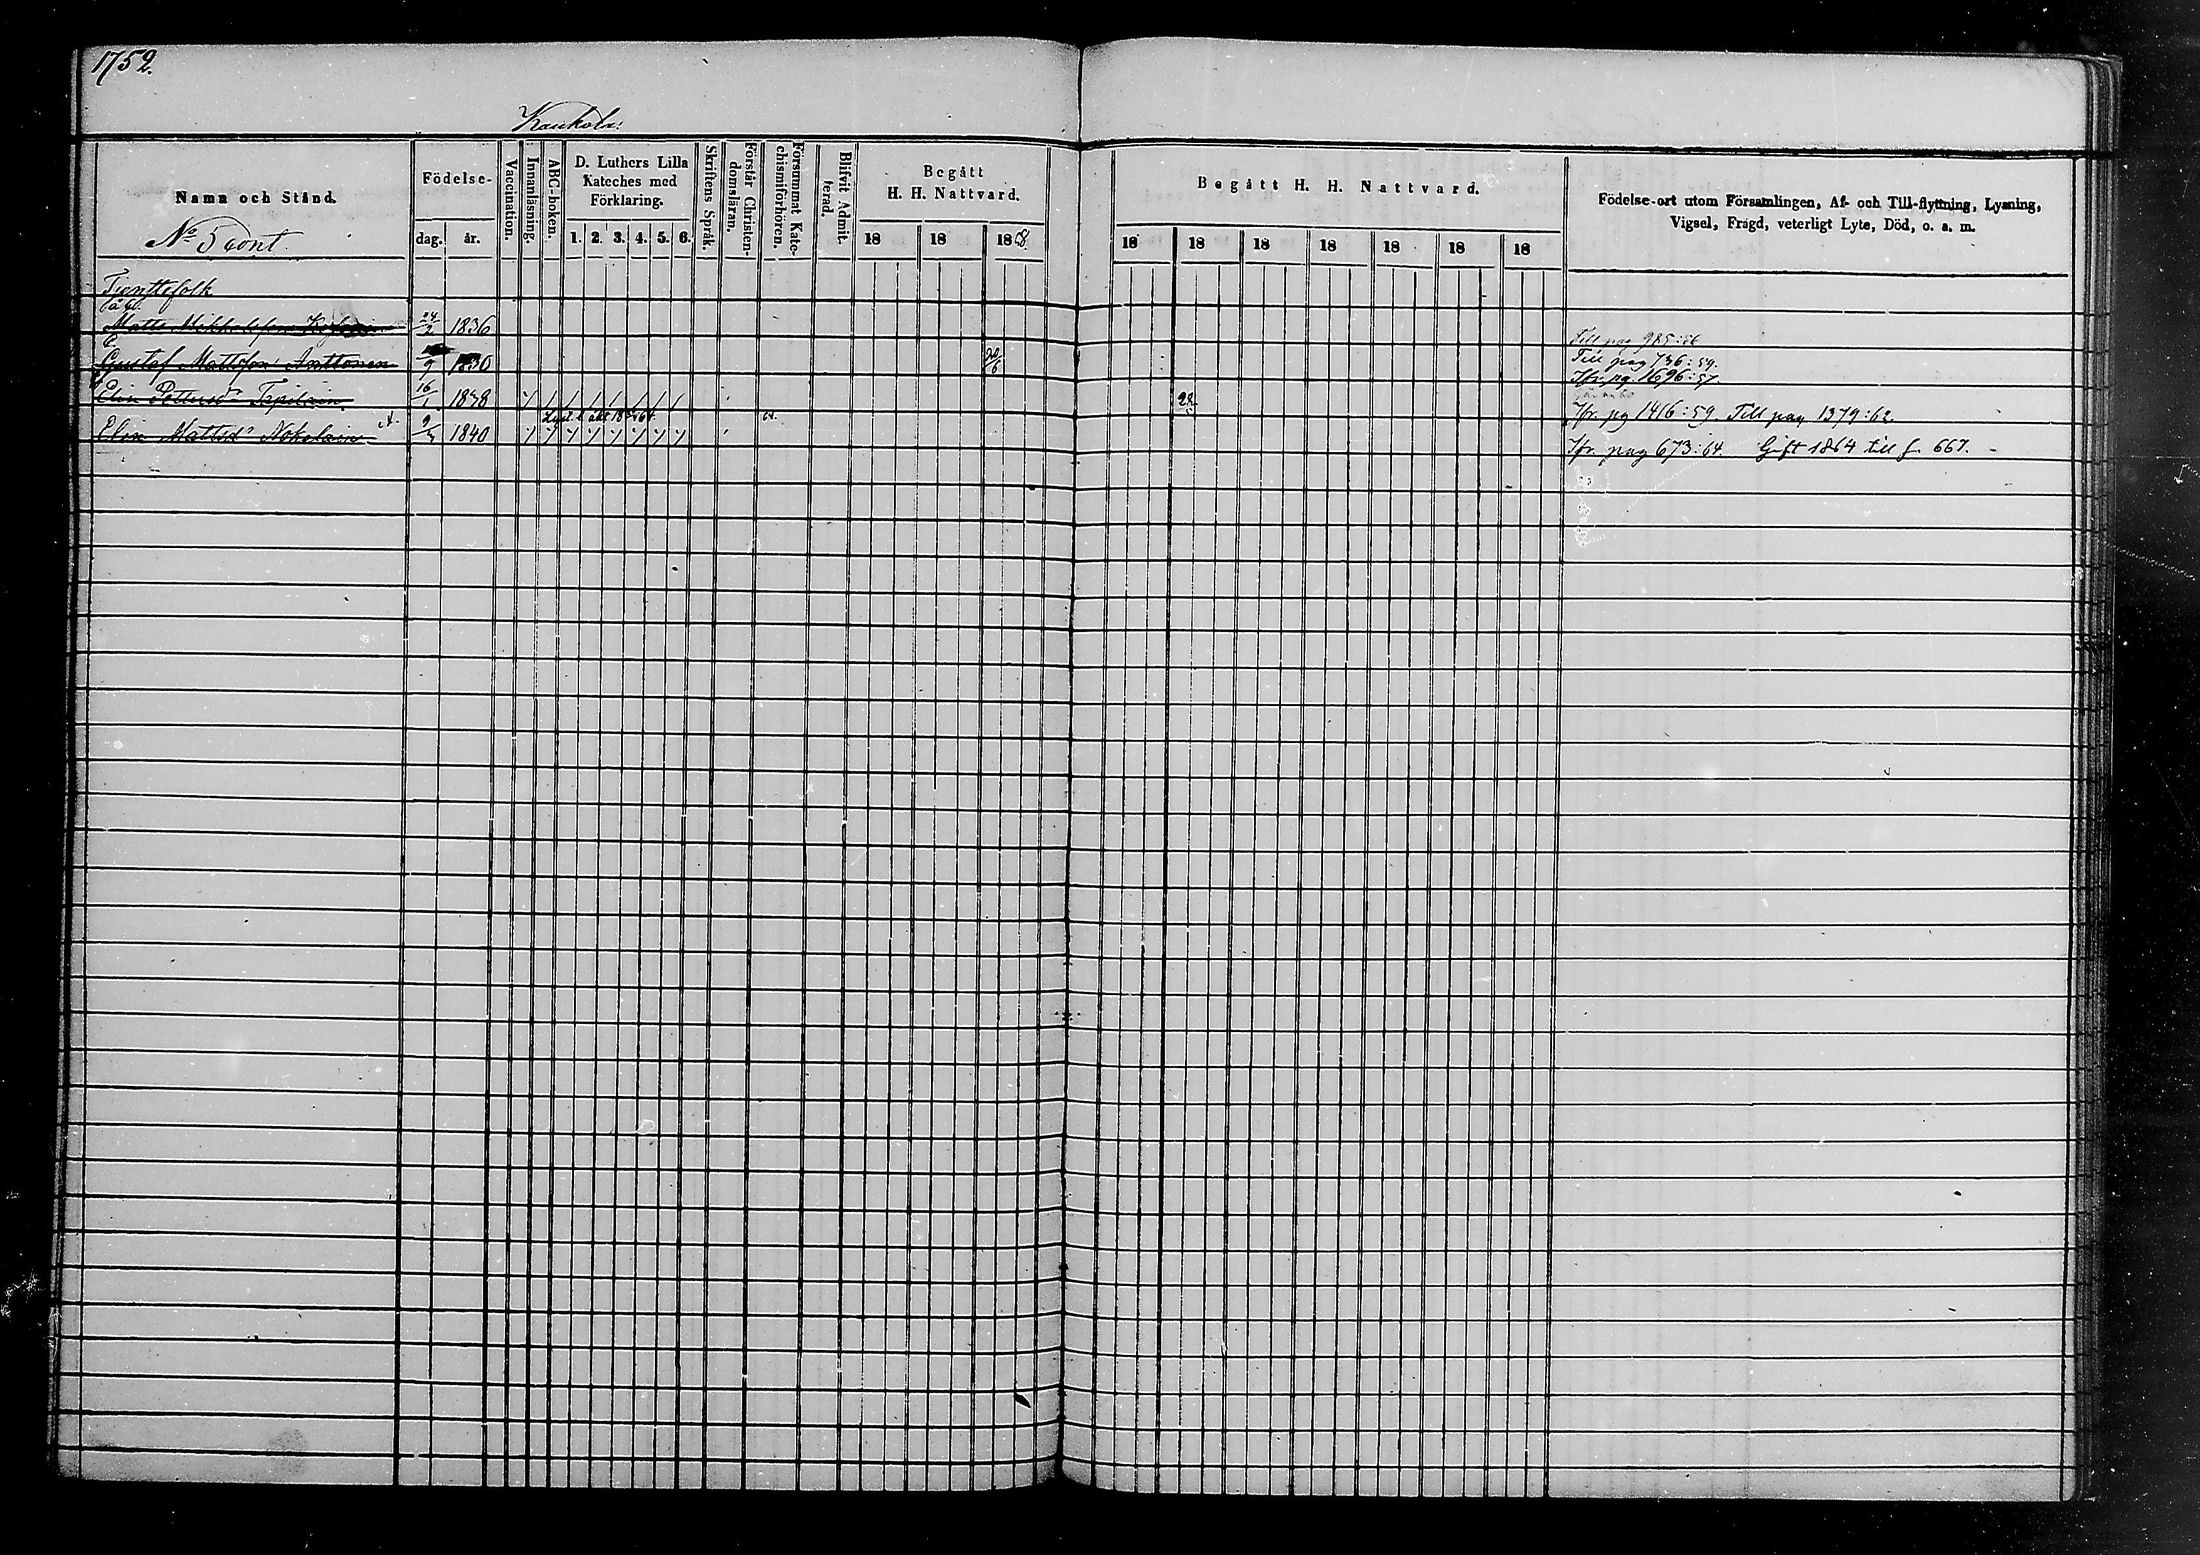 1752.
Kaukola.
Namn och Stånd.
Födelse-
dag. år.
Vaccination.
Innanläsning.
ABC-boken.
D. Luthers Lilla
Kateches med
Förklaring.
1. 2. 3. 4. 5. 6.
Skriftens Språk.
Förstår Christen-
domsläran.
Försummat Kate-
chismiförhören.
Blifvit Admit-
terad.
Begått
H. H. Nattvard.
18 18 1868.
Begått H. H. Nattvard.
18 18 18 18 18 18 18
Födelse-ort utom Församlingen, Af- och Till-flyttning, Lysning,
Vigsel, Frägd, veterligt Lyte, Död, o. a. m.
No 5 cont.
Tjenttefolk
Matts 24/2 1836
Till pag 985:56
Gustaf Mattsson Anttonen 9 1830
Till pag 736:59.
Ifr. pg. 1696:57.
Elin 16/1 1838 / / / / / / / / 22
Ifr. pg 1416:59 Till pag 1379:62.
Elin Mattsd:r Nokelain 1840
Ifr. pag 673:64. Gift 1864 till f. 667.